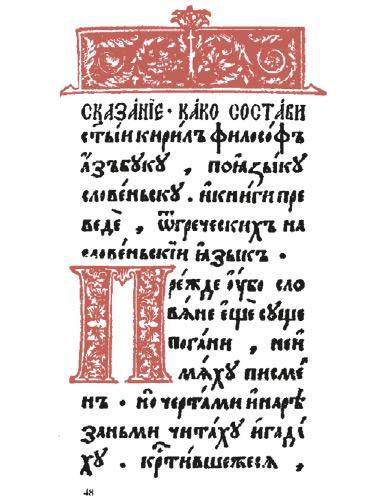 СКАЗА́НІЕ · КА́КО СОСТА́ВИ
ст҃ы́и кири́лъ фило́соѳъ
а҆́ꙁъбꙋкꙋ , поꙗ҆ꙁы́кꙋ
слове́ньскꙋ . и҆кни́ги пре
ведѐ , ѿгре́ческихъ на
слове́ньскїи ꙗ҆ꙁы́къ .
Пре́жде ᲂу҆́бо сло
вѧ́не є҆щѐ сꙋще
пога́ни , неи
мѧ́хꙋ писме́
нъ . но̀ черта́ми и҆нарѣ́
ꙁаньми чита́хꙋ и҆гада́
хꙋ . кр҃ти́вшежесѧ ,
48